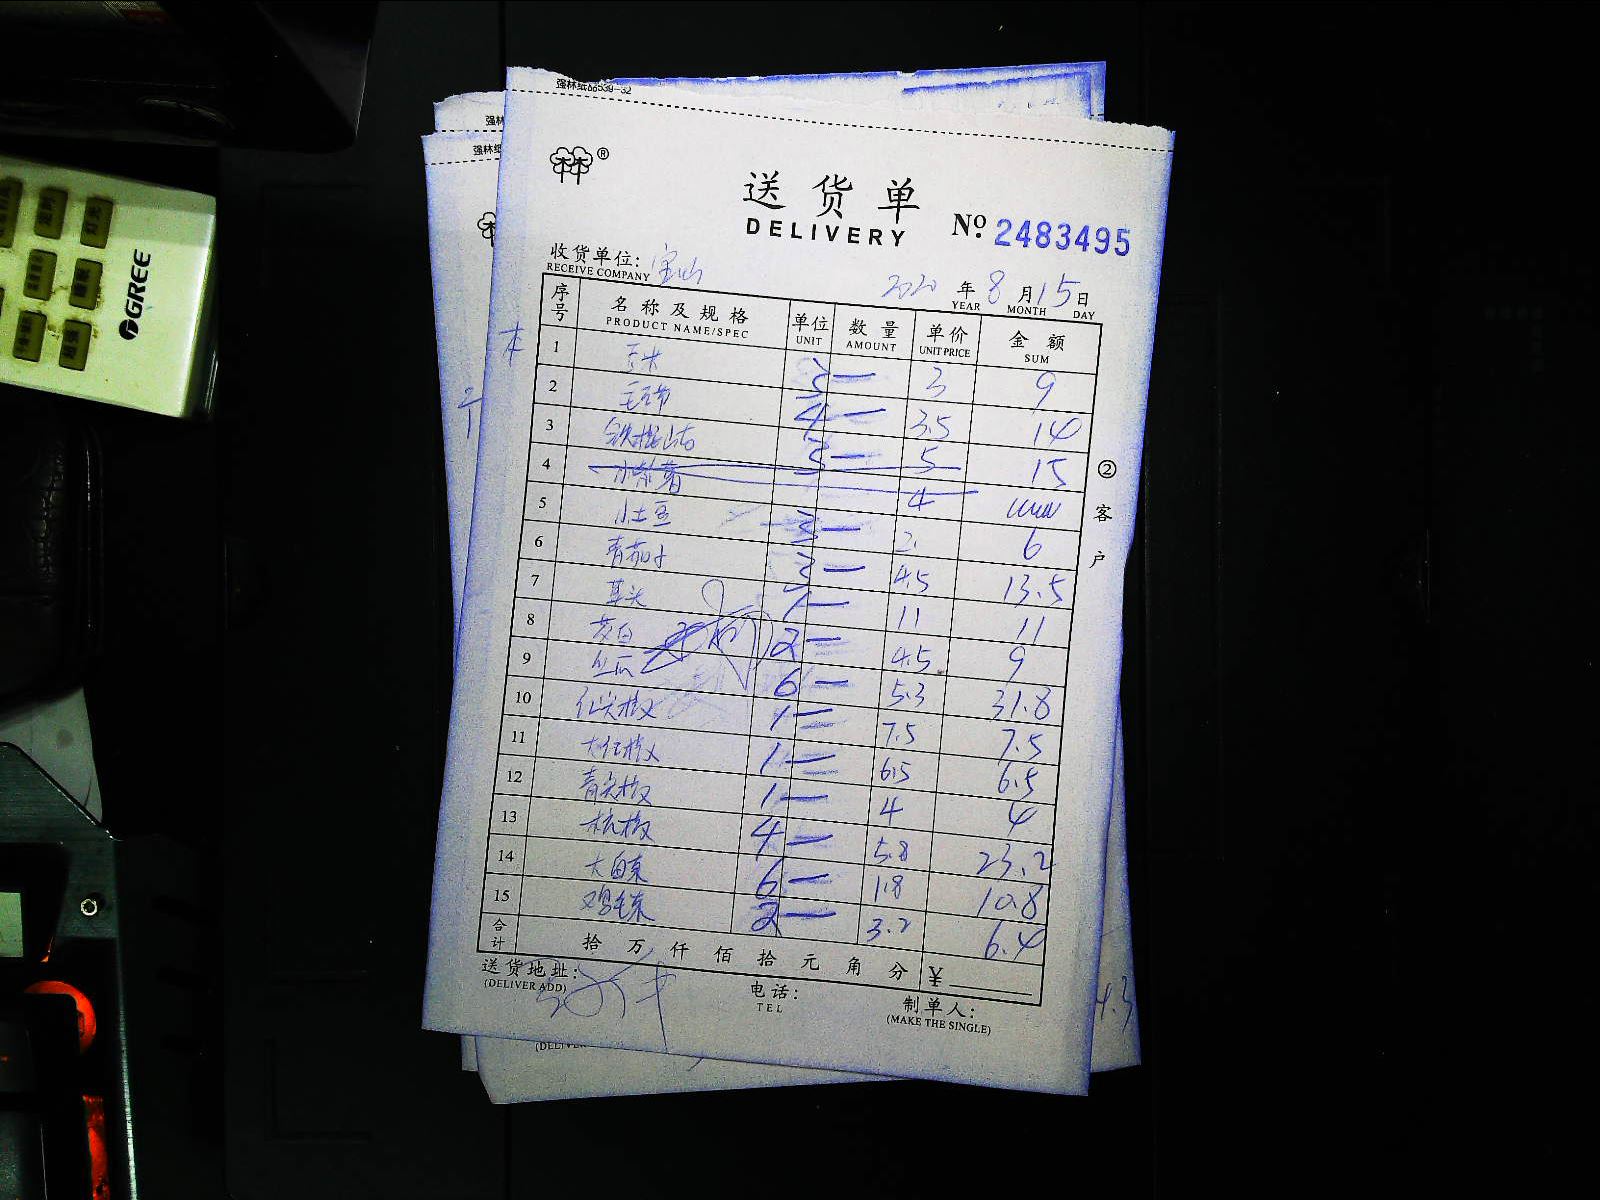 强林纸品539-32
强林
强林纸
®
送货单
DELIVERY
No. 2483495
收货单位: 宝山
RECEIVE COMPANY
2020 年 8 月 15 日
YEAR MONTH DAY
序号 名称及规格 单位 数量 单价 金额
PRODUCT NAME/SPEC UNIT AMOUNT UNIT PRICE SUM
1 玉米 3 — 3 9
2 毛豆节 4 — 3.5 14
3 铁棍山药 3 — 5 15
4 小紫薯 4
5 小土豆 3 — 2. 6
6 青茄子 3 — 4.5 13.5
7 草头 1 — 11 11
8 茭白 2 — 4.5 9
9 丝瓜 6 — 5.3 31.8
10 红尖椒 1 — 7.5 7.5
11 大红椒 1 — 6.5 6.5
12 青尖椒 1 — 4 4
13 杭椒 4 — 5.8 23.2
14 大白菜 6 — 1.8 10.8
15 鸡毛菜 2 — 3.2 6.4
合计 拾 万 仟 佰 拾 元 角 分 ¥
②客户
送货地址:
(DELIVER ADD)
电话:
TEL
制单人:
(MAKE THE SINGLE)
(DELIVER
4.3
GREE